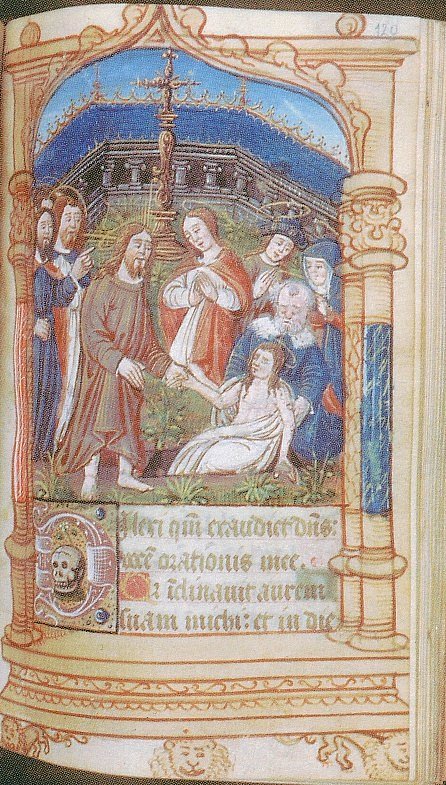 120
Dilexi qm̄ exaudiet dn̄s:
vocē orationis mee.
Qr īclinavit aurem
suam michi: et in die